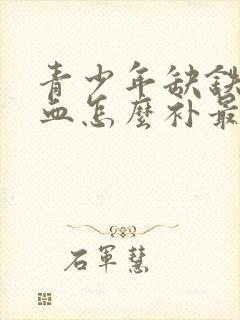 青少年缺铁
血怎麼补最
石軍慧